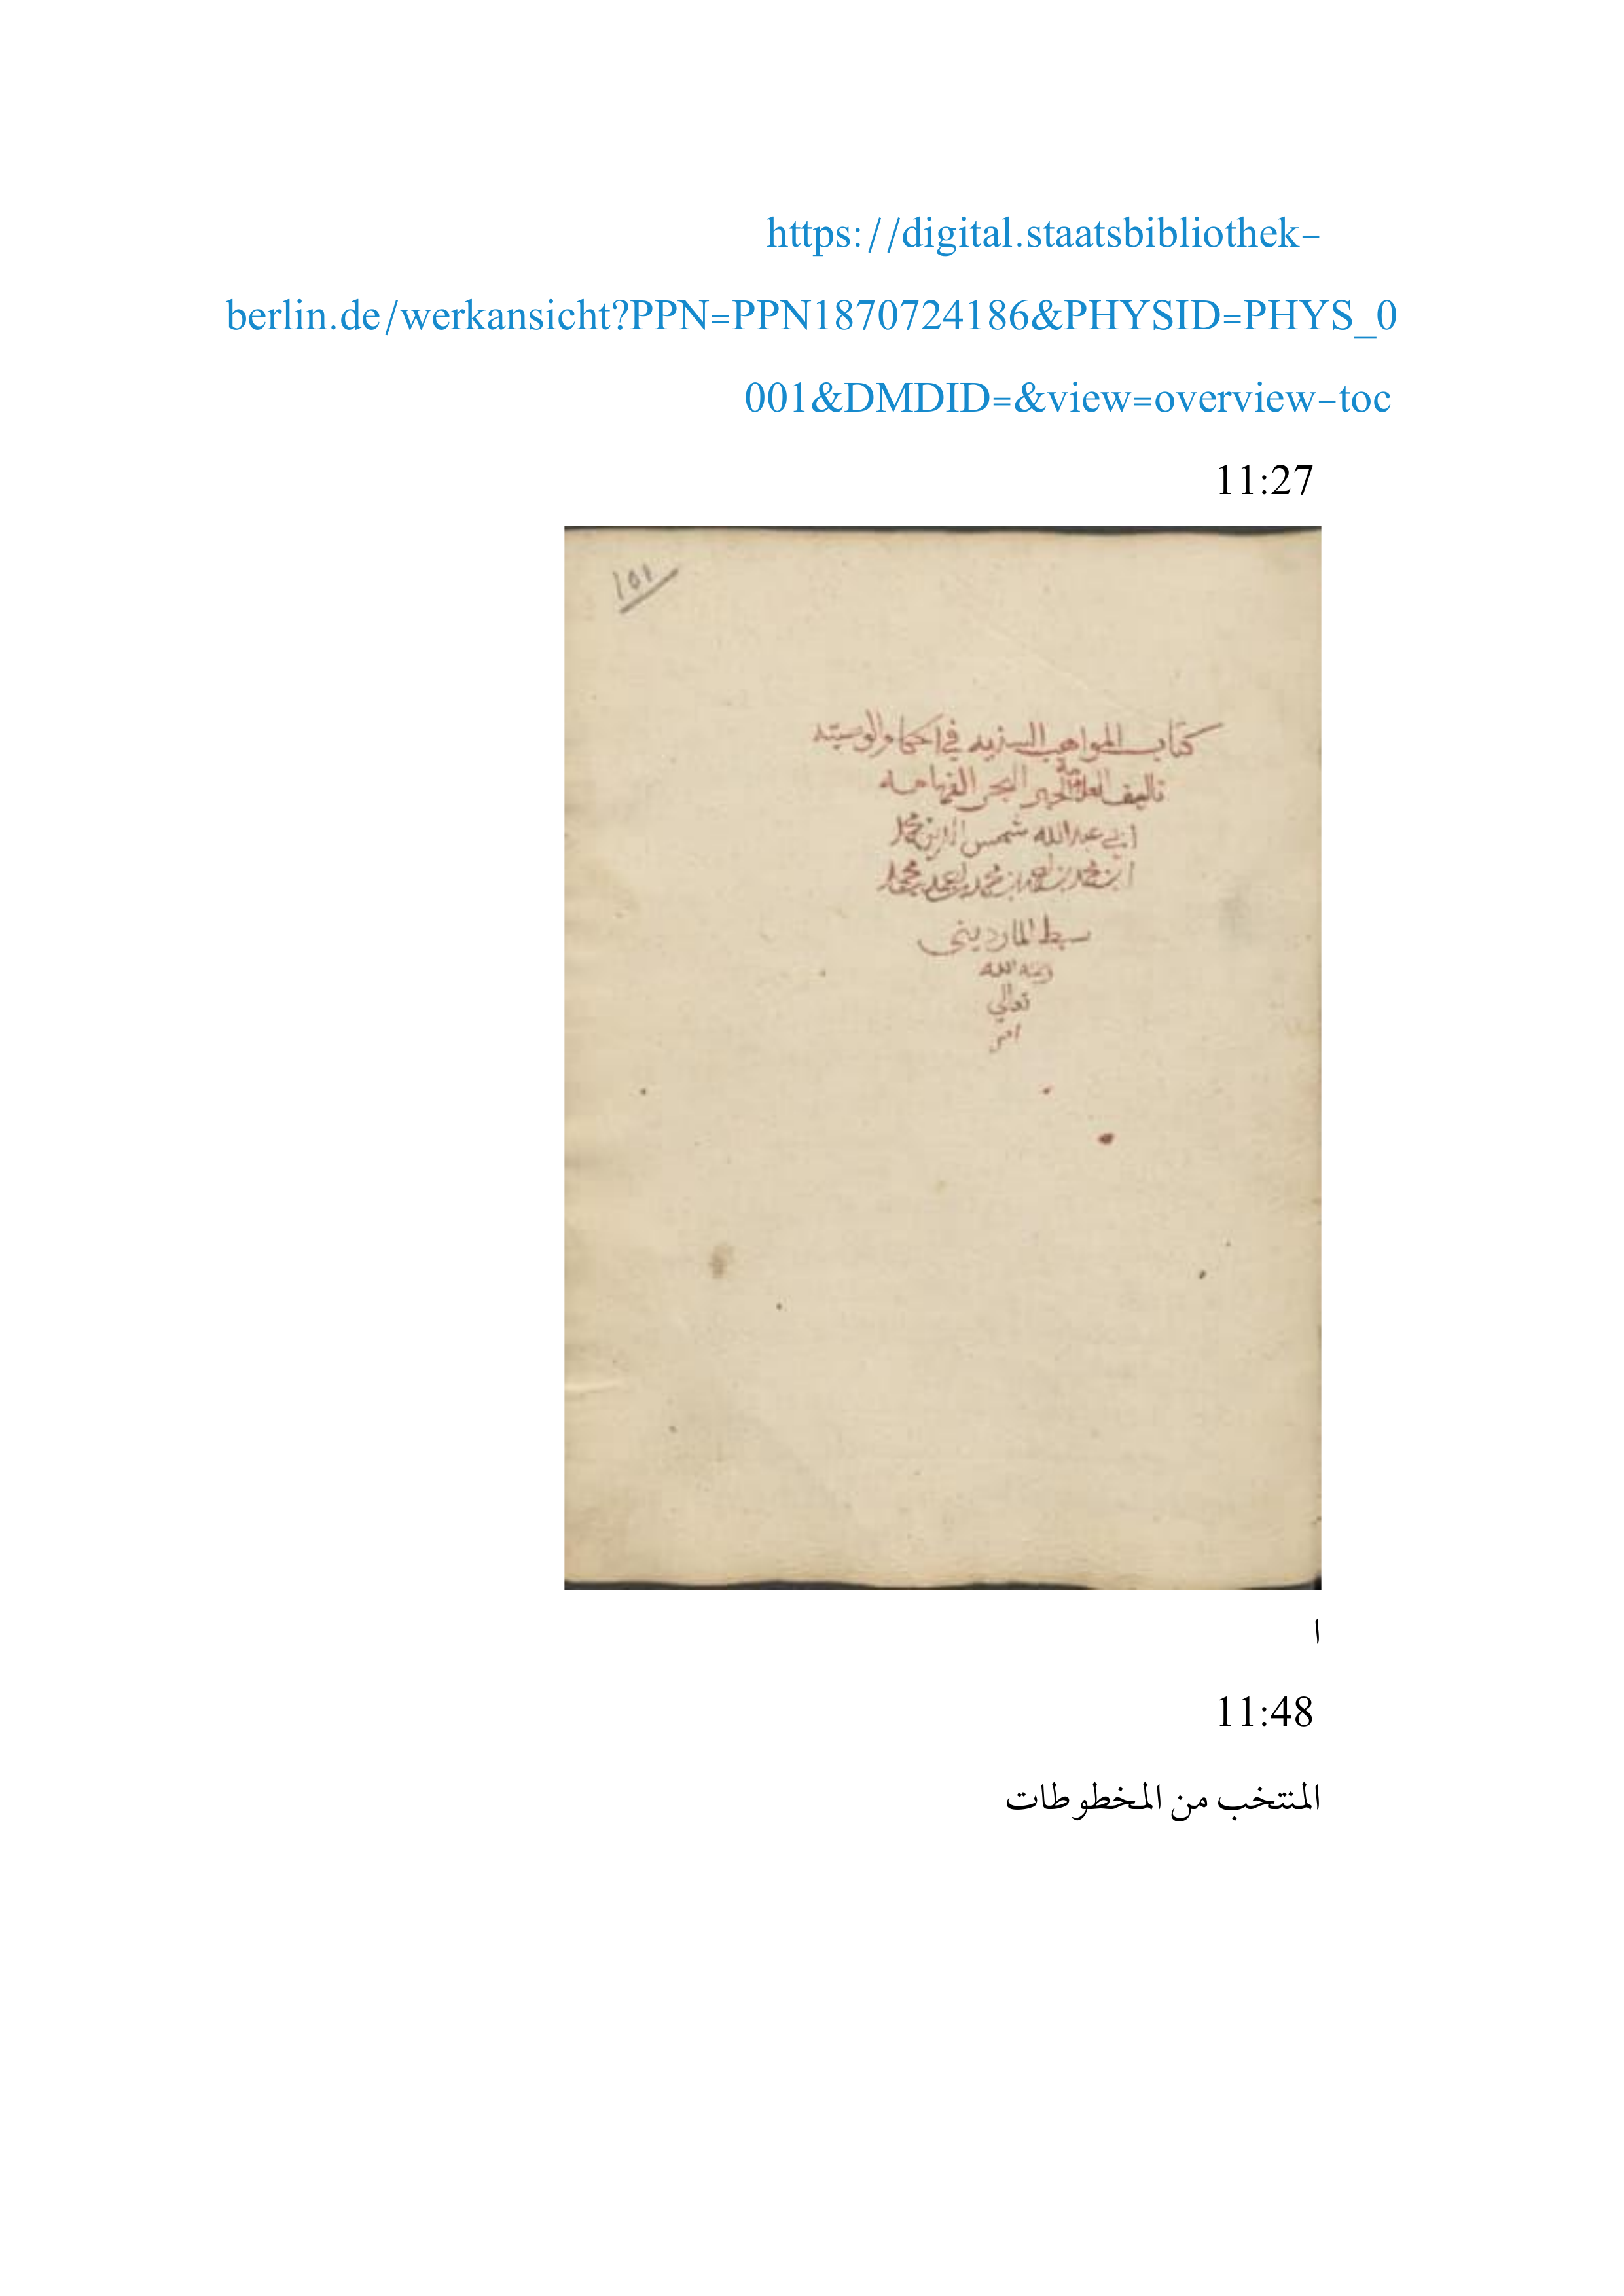 https://digital.staatsbibliothek-
berlin.de/werkansicht?PPN=PPN1870724186&PHYSID=PHYS_0
001&DMDID=&view=overview-toc
11:27
١٥١
كتاب المواهب السنيه في احكام الوصيه
تاليف العلامة الحبر البحر الفهامه
ابي عبد الله شمس الدين محمد
ابن محمد بن احمد بن محمد بن احمد بن محمد
سبط المارديني
رحمه الله
تعالي
امين
ا
11:48
المنتخب من المخطوطات